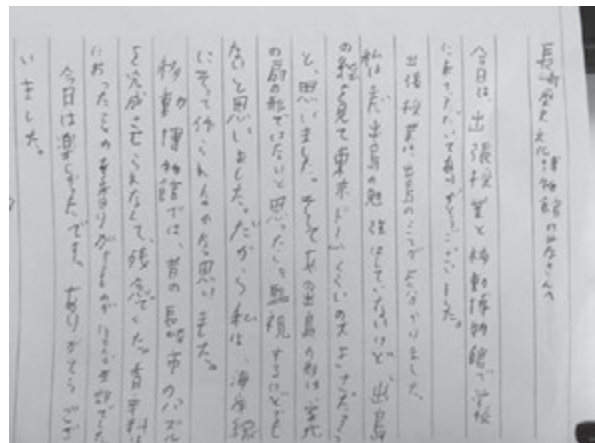 長崎歴史文化博物館のみなさんへ
今日は、出張授業と移動博物館で学校
に来てくださいてありがとうございました。
出張授業は、出島のことがよく分かりました。
私はまだ出島の勉強はしていないけど、出島
の絵を見て東京ドームくらいの大きさだ
と、思いました。そしてあの出島の形は、
の扇の形ではないと思ったし、監視するけども
ないと思いました。だから私は、海岸線
にそって作られたのかなと思いました。
移動博物館では、昔の長崎市のパズル
を完成させられなくて、残念でした。香辛料は
におったもの
今日は楽しかったです。ありがとうござ
いました。